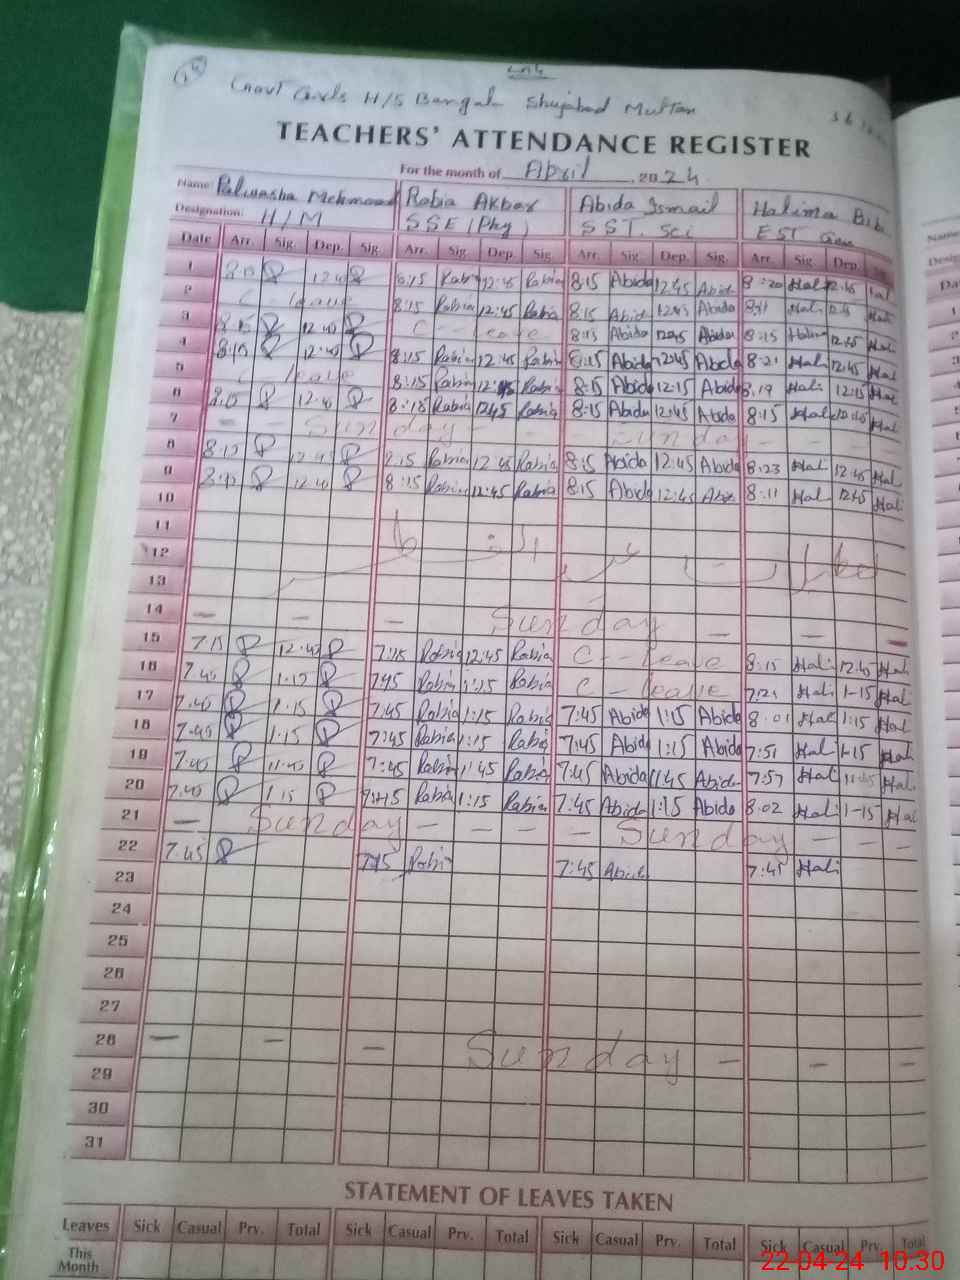 Govt Girls H/S Bangal Shujabad Multan
TEACHERS' ATTENDANCE REGISTER
For the month of April, 2024
Name: Palwasha Mehmood Rabia Akbar Abida Ismail Halima Bibi
Designation: H/M SSE (Phy) SST. Sci EST Gen
Date Arr. Sig. Dep. Sig. Arr. Sig. Dep. Sig. Arr. Sig. Dep. Sig. Arr. Sig. Dep.
1 8:15 Rabia 12:45 Rabia 8:15 Abida 12:45 Abida 8:20 Hali 12:45 Hali
2 C - leave 8:15 Rabia 12:45 Rabia 8:15 Abida 12:45 Abida Hali 12:45 Hali
3 8:15 12:45 C - leave 8:15 Abida 12:45 Abida 8:15 Halima 12:45 Hali
4 8:15 12:45 8:15 Rabia 12:45 Rabia 8:15 Abida 12:45 Abida 8:21 Hali 12:45 Hali
5 C leave 8:15 Rabia Rabia 8:15 Abida 12:15 Abida 8:19 Hali 12:15 Hali
6 Rabia 12:45 Rabia 8:15 Abida 12:45 Abida 8:15 Hali Hali
7 - - Sunday - - - Sunday - - -
8 8:15 Rabia 12:45 Rabia 8:15 Abida 12:45 Abida 8:23 Hali 12:45 Hali
9 8:15 Rabia 12:45 Rabia 8:15 Abida 12:45 Abida 8:11 Hali 12:45 Hali
10
11
12
13
14 - - - Sunday - - -
15 12:45 Rabia 12:45 Rabia C - leave 8:15 Hali 12:45 Hali
16 7:45 1:15 7:45 Rabia 1:15 Rabia C - leave Hali 1-15 Hali
17 7:45 1:15 7:45 Rabia 1:15 Rabia 7:45 Abida 1:15 Abida 8:01 Hal 1:15 Hal
18 7:45 1:15 7:45 Rabia 1:15 Rabia 7:45 Abida 1:15 Abida 7:51 Hal 1-15 Hali
19 7:45 11:45 7:45 Rabia 11:45 Rabia 7:45 Abida 11:45 Abida 7:57 Hal Hal
20 7:45 1:15 7:45 Rabia 1:15 Rabia 7:45 Abida 1:15 Abida 8:02 Hali 1-15 Hal
21 - Sunday - - - - Sunday -
22 7:45 7:45 Rabia 7:45 Abida 7:45 Hali
23
24
25
26
27
28 - - - Sunday - - -
29
30
31
STATEMENT OF LEAVES TAKEN
Leaves Sick Casual Prv. Total Sick Casual Prv. Total Sick Casual Prv. Total Sick Casual Prv. Total
This Month
22-04-24 10:30